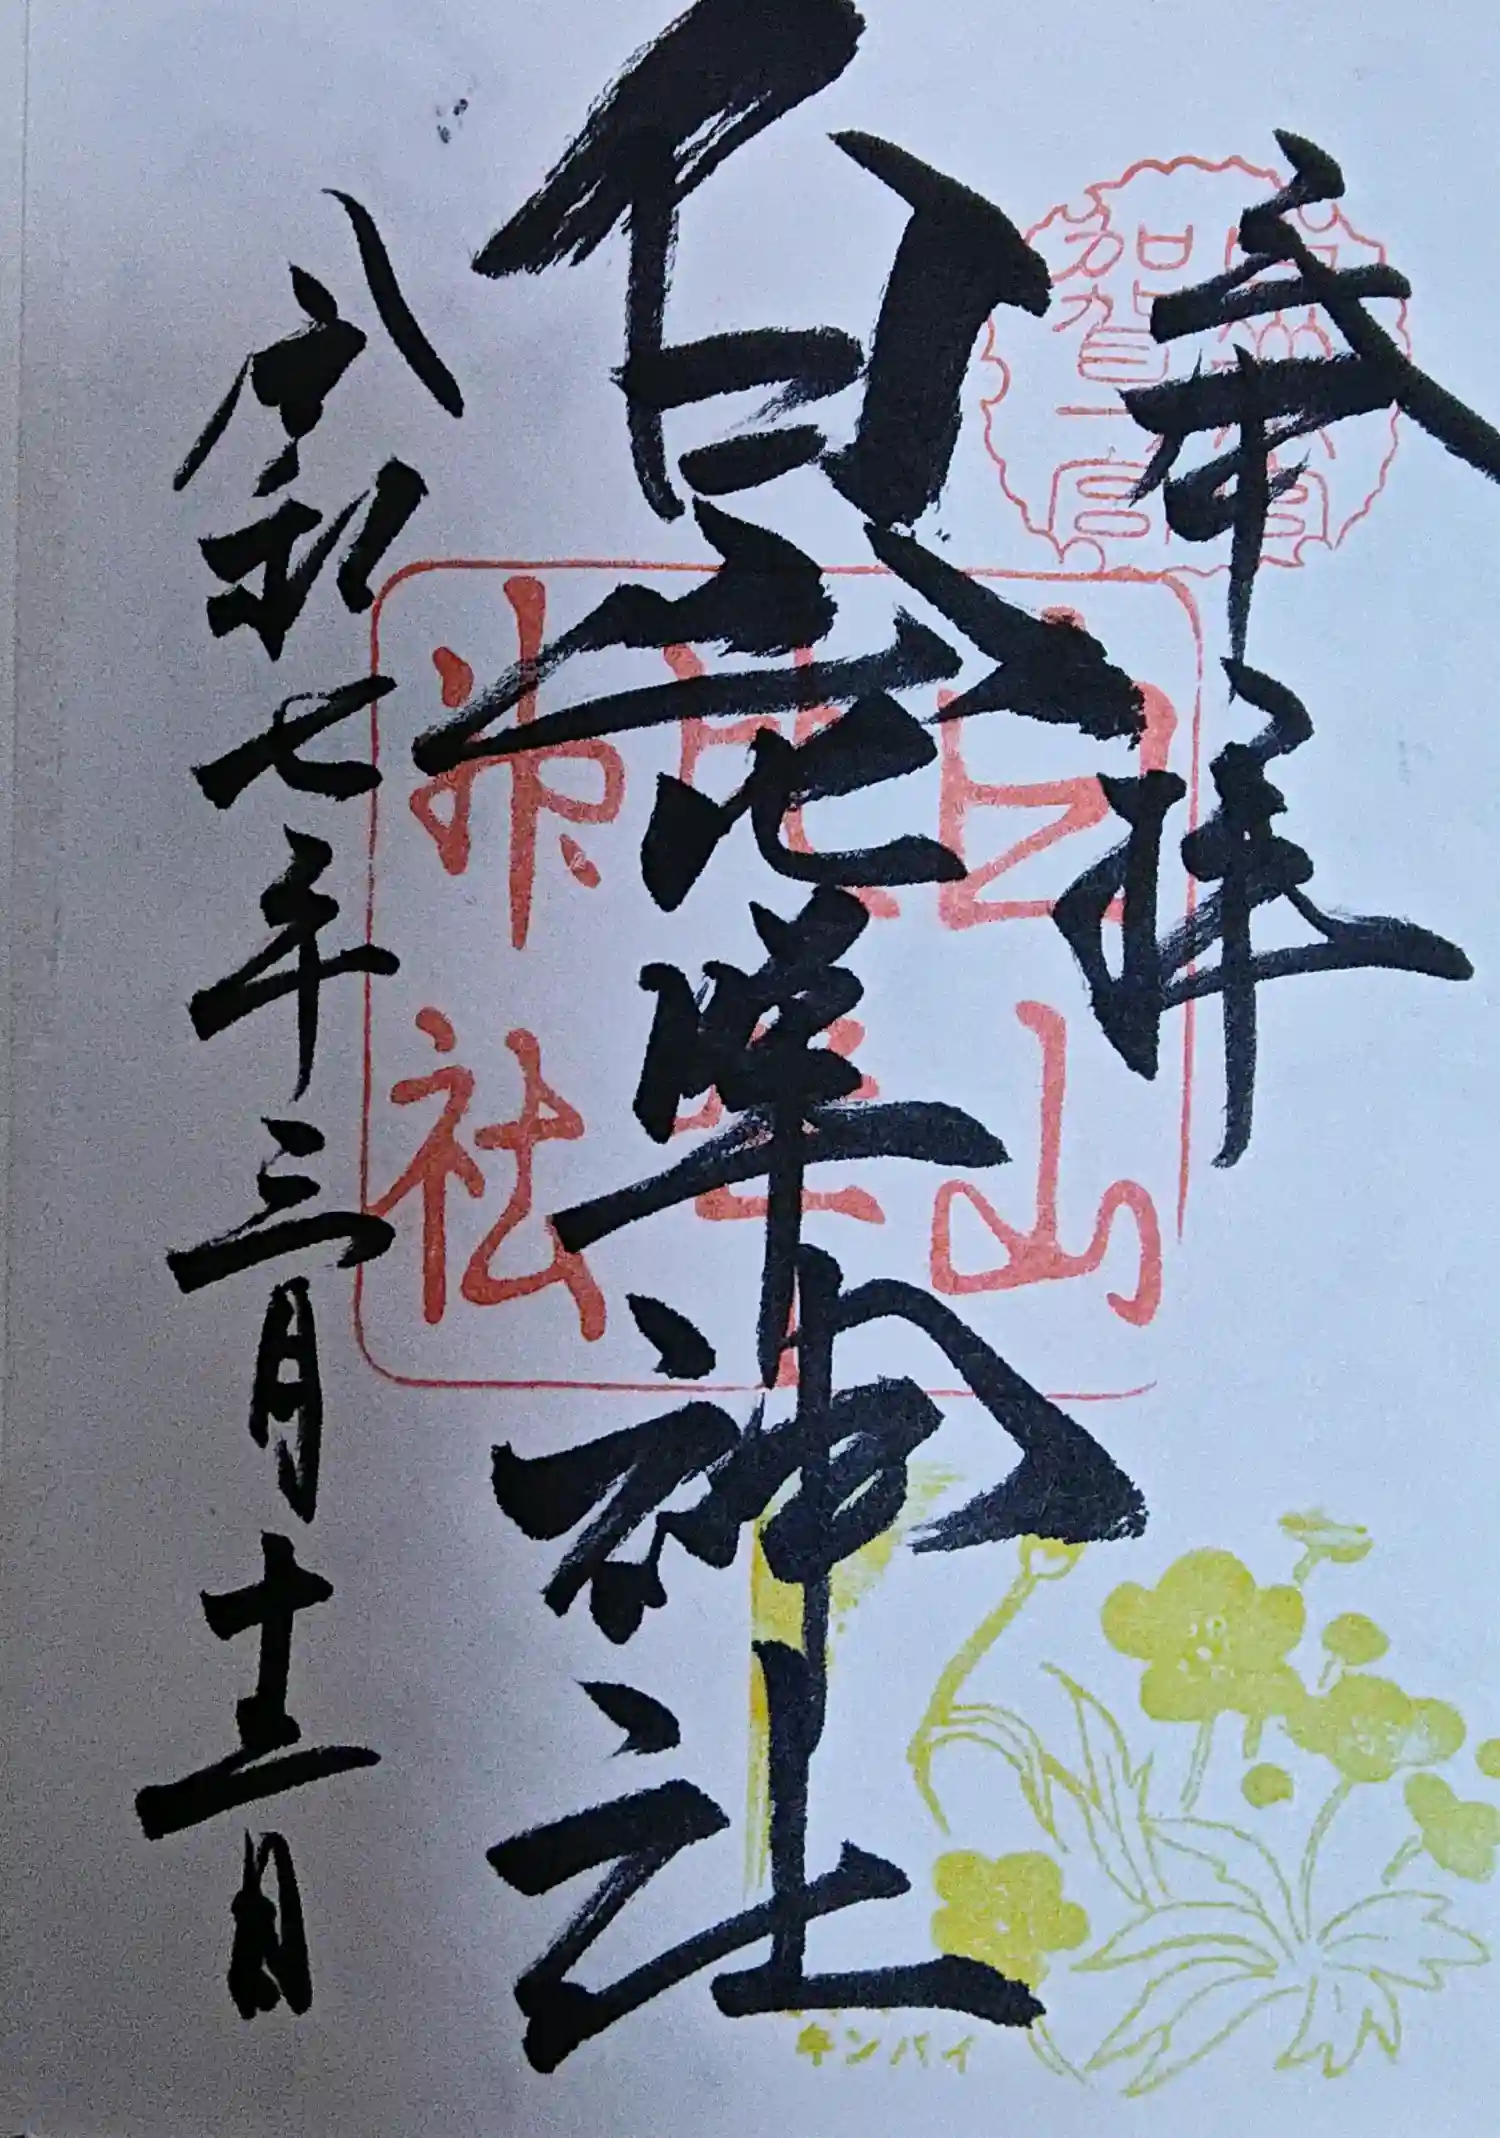 奉拝
白山比咩神社
令和七年三月十二日
白山
比咩
神社
キンバイ